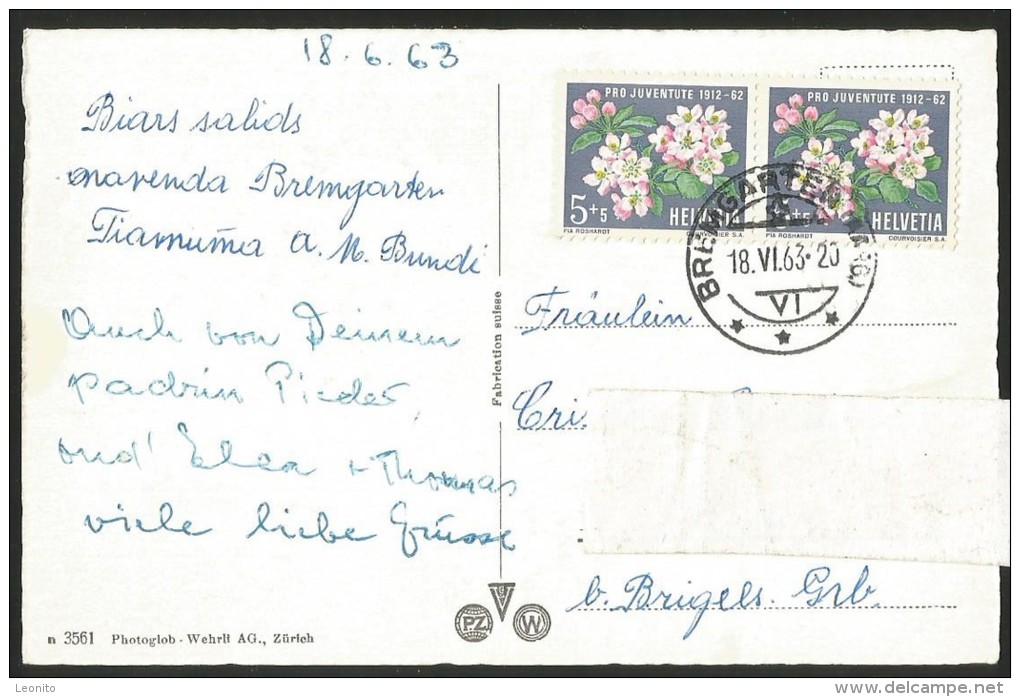 18.6.63
Biars salids
navenda Bremgarten
Tiamuma a. M. Bundi
Auch von Deinem
padrin Pieder,
und Elen + Thomas
viele liebe Grüsse
n 3561 Photoglob - Wehrli AG., Zürich
Fabrication suisse
PZ
W
PRO JUVENTUTE 1912-62
5+5 HELVETIA
PIA ROSHARDT COURVOISIER S.A.
PRO JUVENTUTE 1912-62
5+5 HELVETIA
PIA ROSHARDT COURVOISIER S.A.
BREMGARTEN
18.VI.63·20
VI
Fräulein
Cri
b. Brigels. Grb.
Leonito
www.delcampe.net